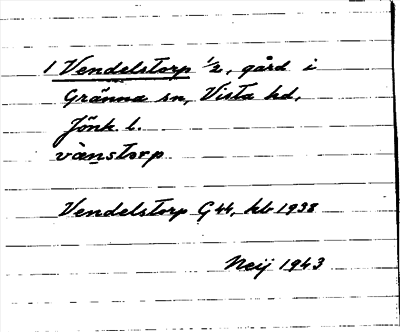 1 Vendelstorp 1/2, gård i
Gränna sn, Vista hd,
Jönk. l.
vànstorp
Vendelstorp G 44, kb 1938
Neij 1943